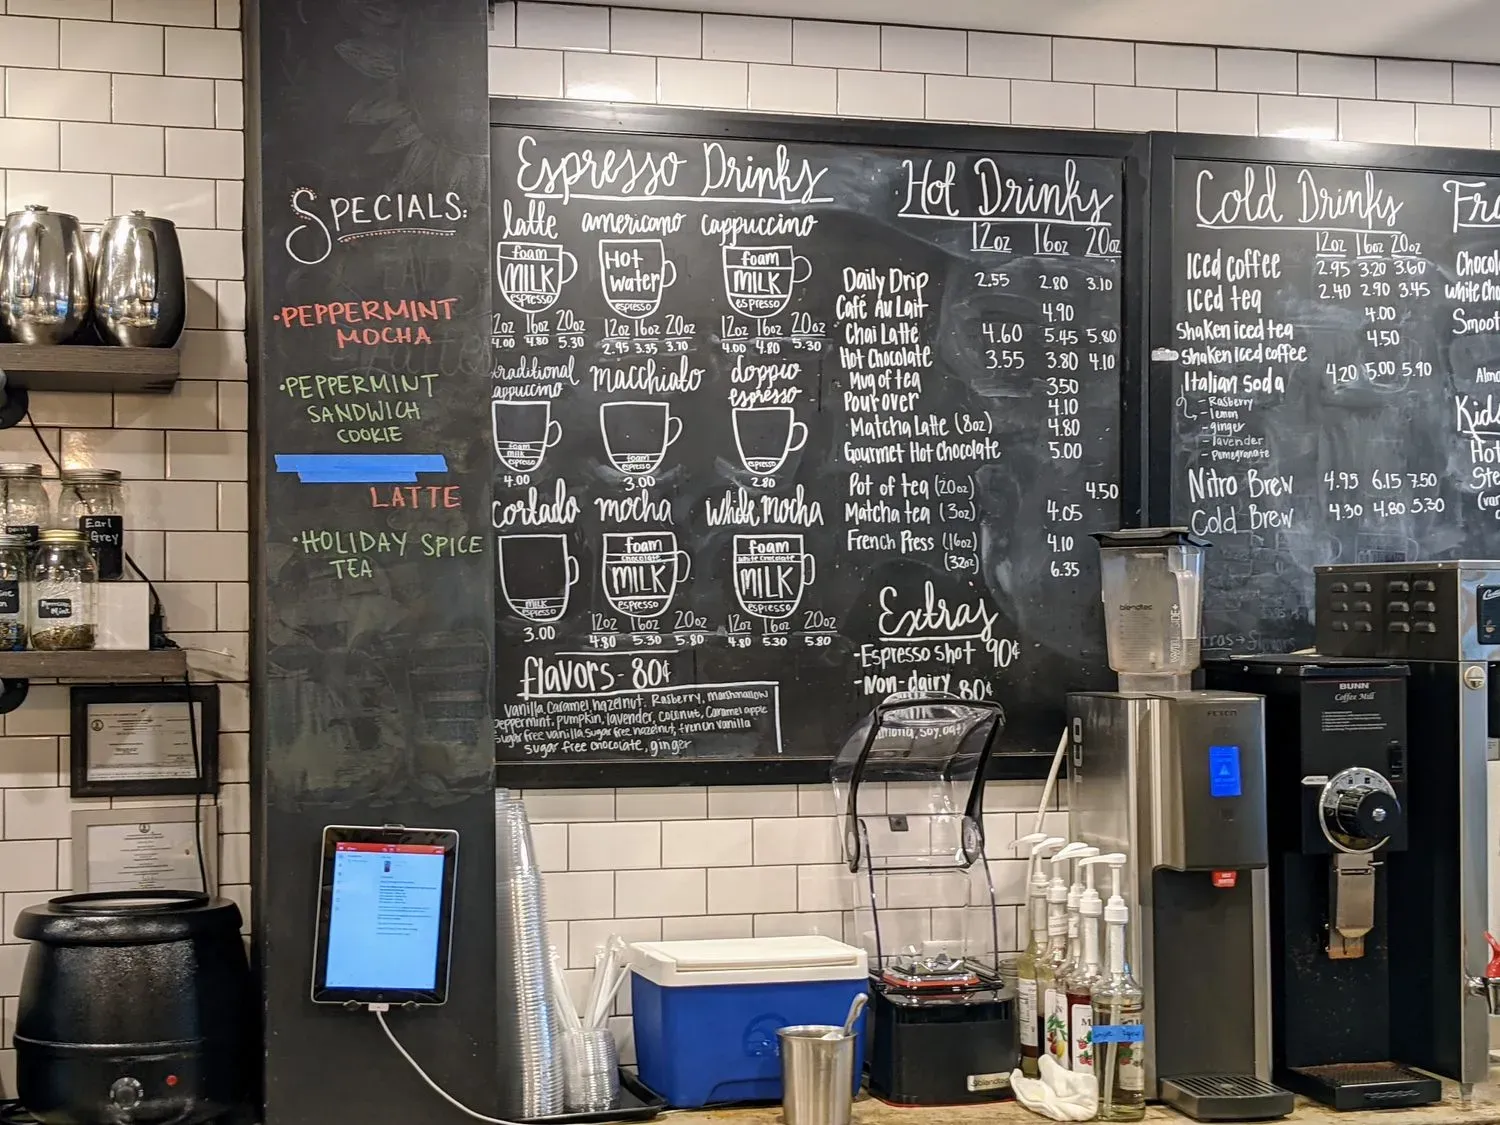 SPECIALS:
·PEPPERMINT
MOCHA
·PEPPERMINT
SANDWICH
COOKIE
LATTE
·HOLIDAY SPICE
TEA
Espresso Drinks
latte americano cappuccino
foam HOT foam
MILK water MILK
espresso espresso espresso
12oz 16oz 20oz 12oz 16oz 20oz 12oz 16oz 20oz
4.00 4.80 5.30 2.95 3.35 3.70 4.00 4.80 5.30
traditional macchiato doppio
cappuccino espresso
foam
milk foam
espresso espresso espresso
4.00 3.00 2.80
cortado mocha white mocha
foam foam
chocolate white chocolate
MILK MILK
milk
espresso espresso espresso
3.00
12oz 16oz 20oz 12oz 16oz 20oz
4.80 5.30 5.80 4.80 5.30 5.80
flavors - 80¢
vanilla, caramel, hazelnut, Rasberry, marshmallow
peppermint, pumpkin, lavender, coconut, Caramel apple
sugar free vanilla, sugar free hazelnut, french vanilla
sugar free chocolate, ginger
Hot Drinks
12oz 16oz 20oz
Daily Drip 2.55 2.80 3.10
Café Au Lait 4.90
Chai Latte 4.60 5.45 5.80
Hot Chocolate 3.55 3.80 4.10
Mug of tea 3.50
Pour over 4.10
Matcha Latte (8oz) 4.80
Gourmet Hot Chocolate 5.00
Pot of tea (20oz) 4.50
Matcha tea (3oz) 4.05
French Press (16oz) 4.10
(32oz) 6.35
Extras
-Espresso shot 90¢
-Non-dairy 80¢
soy, oat)
Cold Drinks
12oz 16oz 20oz
Iced coffee 2.95 3.20 3.60
Iced tea 2.40 2.90 3.45
Shaken iced tea 4.00
Shaken iced coffee 4.50
Italian Soda 4.20 5.00 5.90
- Rasberry
- lemon
- ginger
- lavender
- Pomegranate
Nitro Brew 4.95 6.15 7.50
Cold Brew 4.30 4.80 5.30
Fra
Chocol
White Choc
Smoot
Almo
Kids
Hot
Ste
(van
Earl
Grey
blendtec
WILDSIDE+
FETCO
BUNN
Coffee Mill
blendtec